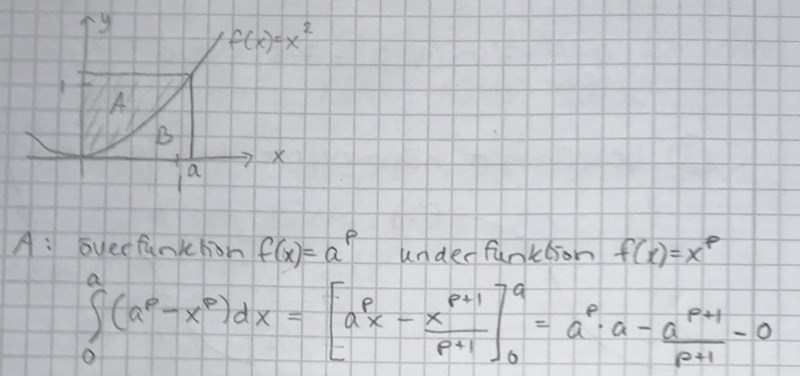 y
f(x)=x²
1
A
B
x
1
a
A: överfunktion f(x)=a^p underfunktion f(x)=x^p
∫₀^a (a^p - x^p) dx = [a^p x - x^(p+1)/(p+1)]₀^a = a^p · a - a^(p+1)/(p+1) - 0